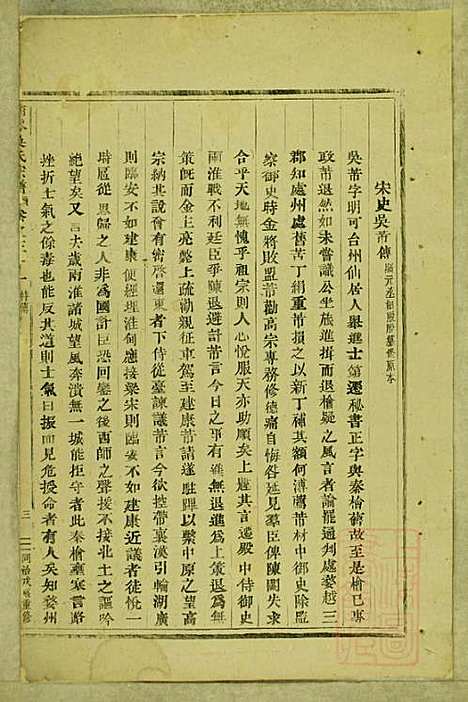 宋史吳芾傳
吳芾字明可台州仙居人舉進士第遷秘書正字與秦檜舊故至是檜已專
政芾退然如未嘗識公坐旅進揖而退檜疑之風言者論罷通判處婺越三
郡知處州處舊苦丁絹重芾損之以新丁補其額何溥薦芾材中御史除監
察御史時金將敗盟芾勸高宗專務修德痛自悔咎延見羣臣俾陳闕失求
合乎天地無愧乎祖宗則人心悅服天亦助順矣上韙其言遷殿中侍御史
兩淮戰不利廷臣爭陳退避計芾言今日之事有進無退進爲上策退爲無
策旣而金主亮斃上疏勸親征車駕至建康芾請遂駐蹕以繫中原之望高
宗納其說會有密啓還東者下侍從臺諫議芾言今欲控帶襄漢引輸湖廣
則臨安不如建康便經理淮甸應接梁宋則臨安不如建康近議者徒悅一
時扈從思歸之人非爲國計臣恐回鑾之後西師之聲援不接北土之謳吟
絶望矣又言去歲兩淮諸城望風奔潰無一城能拒守者此秦檜壅塞言路
挫折士氣之餘毒也能反其道則士氣日振而見危授命者有人矣知婺州
氏宗譜
三
同治戊辰重修